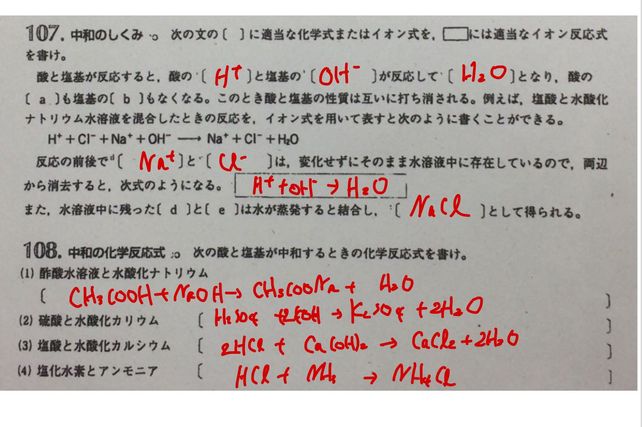 107. 中和のしくみ 次の文の〔 〕に適当な化学式またはイオン式を，□には適当なイオン反応式
を書け。
酸と塩基が反応すると，酸の〔 H⁺ 〕と塩基の〔 OH⁻ 〕が反応して〔 H₂O 〕となり，酸の
〔 a 〕も塩基の〔 b 〕もなくなる。このとき酸と塩基の性質は互いに打ち消される。例えば，塩酸と水酸化
ナトリウム水溶液を混合したときの反応を，イオン式を用いて表すと次のように書くことができる。
H⁺+Cl⁻+Na⁺+OH⁻ ⟶ Na⁺+Cl⁻+H₂O
反応の前後で〔 Na⁺ 〕と〔 Cl⁻ 〕は，変化せずにそのまま水溶液中に存在しているので，両辺
から消去すると，次式のようになる。 H⁺+OH⁻→H₂O
また，水溶液中に残った〔 d 〕と〔 e 〕は水が蒸発すると結合し，〔 NaCl 〕として得られる。
108. 中和の化学反応式 次の酸と塩基が中和するときの化学反応式を書け。
(1) 酢酸水溶液と水酸化ナトリウム
〔 CH₃COOH+NaOH→CH₃COONa+ H₂O 〕
(2) 硫酸と水酸化カリウム 〔 H₂SO₄ +2KOH→K₂SO₄+2H₂O 〕
(3) 塩酸と水酸化カルシウム 〔 2HCl + Ca(OH)₂ → CaCl₂+2H₂O 〕
(4) 塩化水素とアンモニア 〔 HCl + NH₃ → NH₄Cl 〕